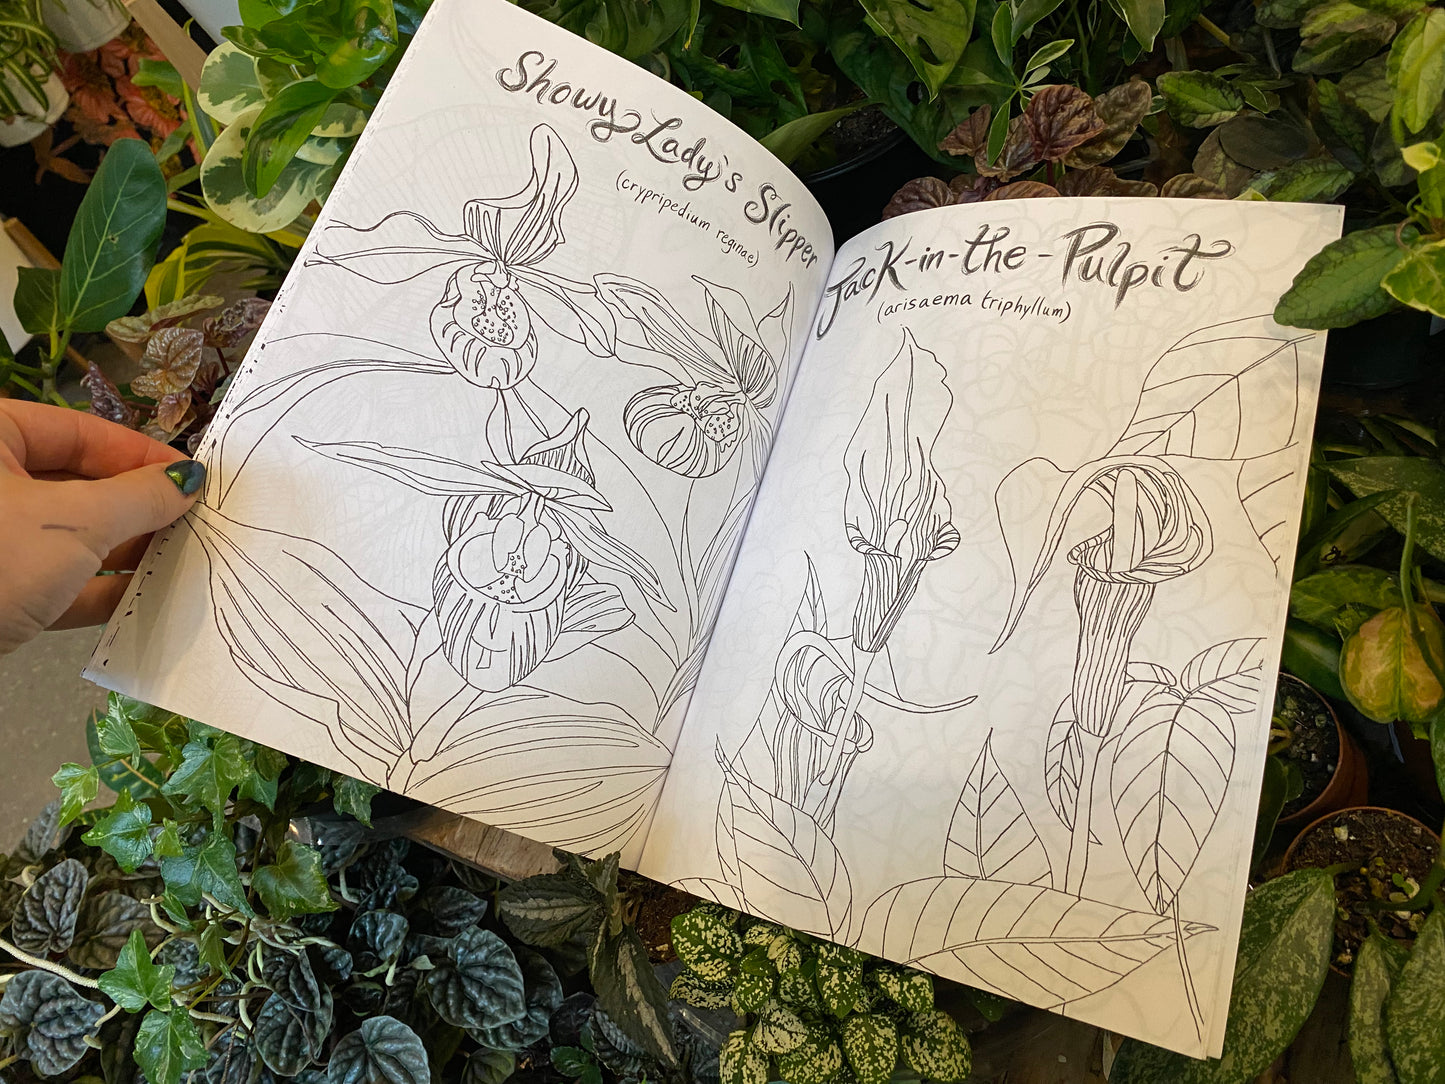 Showy Lady's Slipper
(crypripedium reginae)
Jack-in-the-Pulpit
(arisaema triphyllum)